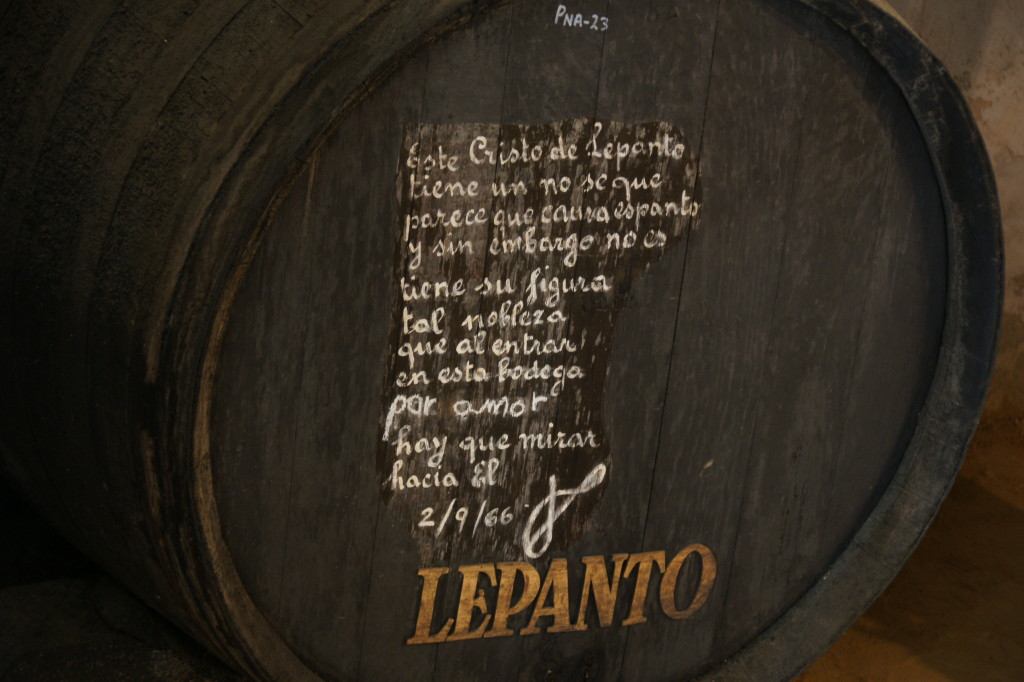 PNA-23
Este Cristo de Lepanto
tiene un no se que
parece que causa espanto
y sin embargo no es
tiene su figura
tal nobleza
que al entrar
en esta bodega
por amor
hay que mirar
hacia El
2/9/66
LEPANTO